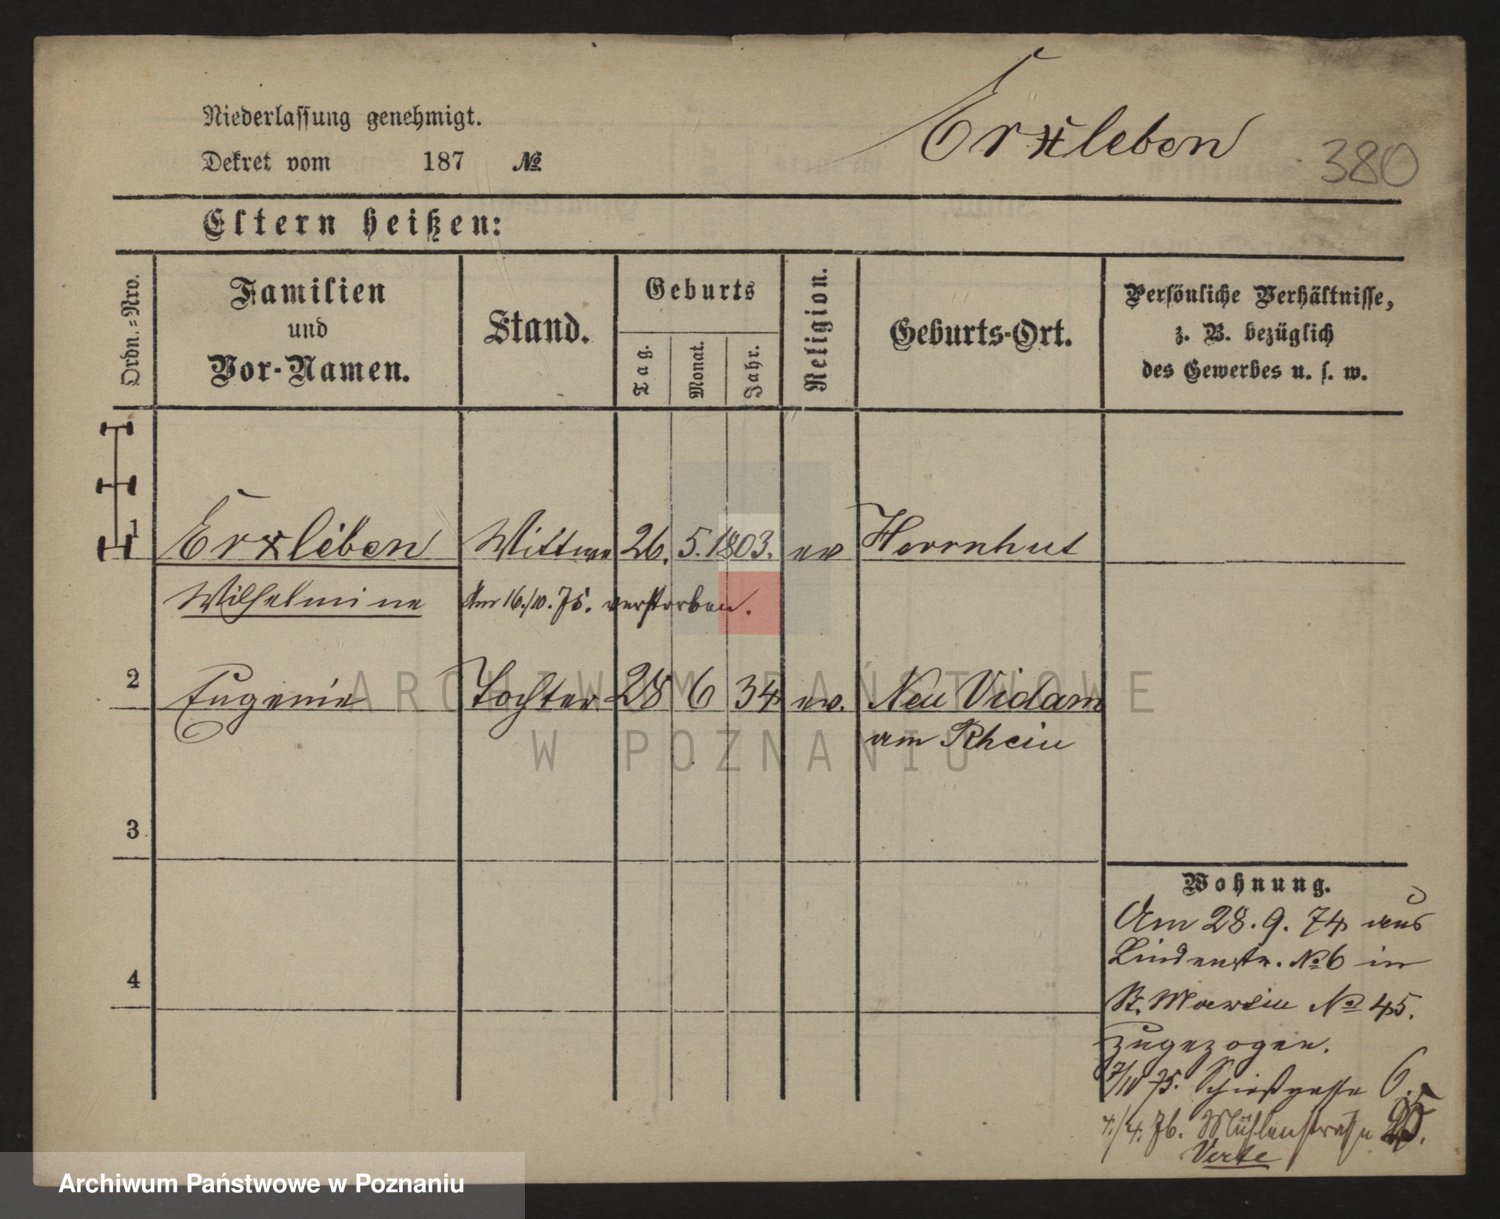 Niederlassung genehmigt.
Dekret vom 187 №
Erxleben
380
Eltern heißen:
Ordn.-Nro.
Familien
und
Vor-Namen.
Stand.
Geburts
Tag.
Monat.
Jahr.
Religion.
Geburts-Ort.
Persönliche Verhältnisse,
z. B. bezüglich
des Gewerbes u. s. w.
1 Erxleben Wittwe 26. 5. 1803. ev Herrnhut
Wilhelmine Am 16./10. 75. verstorben.
2 Eugenie Tochter 28 6 34 ev. Neu Vidam
am Rhein
3
4
Wohnung.
Am 28. 9. 74 aus
Lindenstr. № 6 in
St. Martin № 45.
zugezogen.
7/10 75. Schießgasse 6.
4./4. 76. Mühlenstraße 25.
Verte
ARCHIWUM PAŃSTWOWE
W POZNANIU
Archiwum Państwowe w Poznaniu